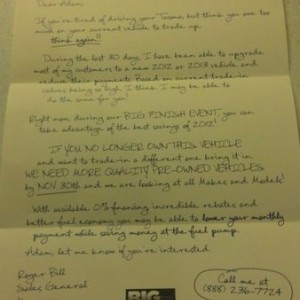 Dear Adam,
If you're tired of driving your Tacoma, but think you owe too
much on your current vehicle to trade up,
think again!!
During the last 30 days, I have been able to upgrade
most of my customers to a new 2012 or 2013 vehicle and
reduce their payments. Based on current trade-in
values being so high, I think I may be able to
do the same for you.
Right now during our BIG FINISH EVENT, you can
take advantage of the best savings of 2012!
IF YOU NO LONGER OWN THIS VEHICLE
and want to trade-in a different one, bring it in.
WE NEED MORE QUALITY PRE-OWNED VEHICLES
by NOV 30th and we are looking at all Makes and Models!
With available 0% financing, incredible rebates and
better fuel economy you may be able to lower your monthly
payment while saving money at the fuel pump.
Adam, let me know if you're interested.
Roger Bill
Sales General
Call me at
(888) 236-7724
BIG